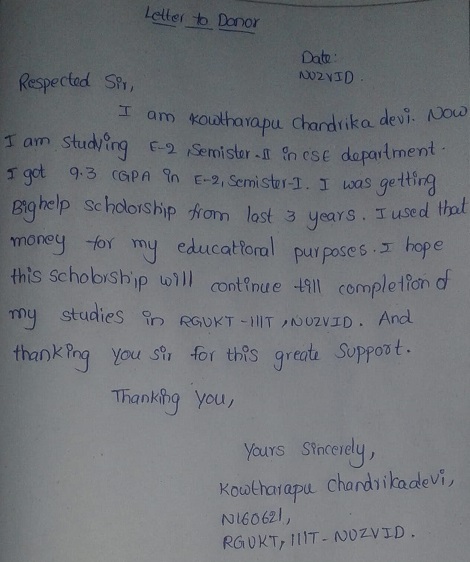 Letter to Donor
Date:
NUZVID.
Respected Sir,
I am Kowtharapu Chandrika devi. Now
I am studying E-2, Semister-II in CSE department.
I got 9.3 CGPA in E-2, Semister-I. I was getting
Bighelp scholorship from last 3 years. I used that
money for my educational purposes. I hope
this scholorship will continue till completion of
my studies in RGUKT-IIIT, NUZVID. And
thanking you sir for this greate Support.
Thanking you,
Yours Sincerely,
Kowtharapu Chandrikadevi,
N160621,
RGUKT, IIIT-NUZVID.